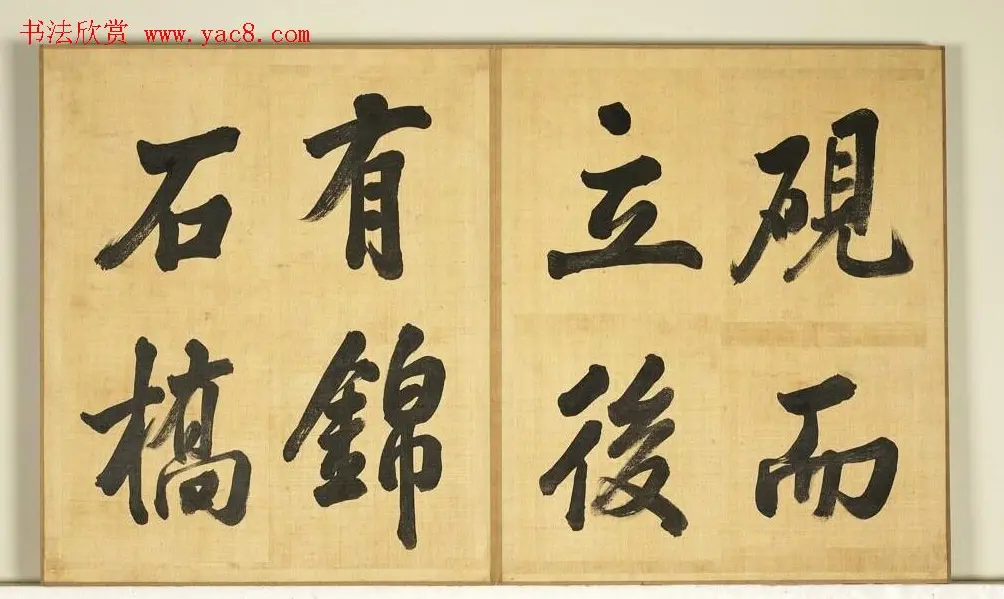 书法欣赏 www.yac8.com
硯而
立後
有錦
石橋